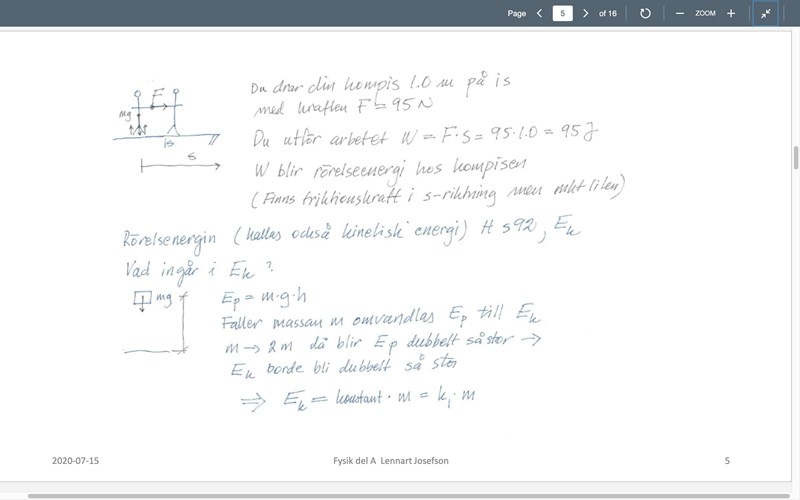 Page 5 of 16 ZOOM
F
mg
is
s
Du drar din kompis 1.0 m på is
med kraften F = 95N
Du utför arbetet W = F·s = 95·1.0 = 95J
W blir rörelseenergi hos kompisen
(Finns friktionskraft i s-riktning men mkt liten)
Rörelsenergin (kallas också kinetisk energi) H s92, Ek
Vad ingår i Ek?
mg
Ep = m·g·h
Faller massan m omvandlas Ep till Ek
m → 2m då blir Ep dubbelt så stor →
Ek borde bli dubbelt så stor
⇒ Ek = konstant · m = k₁ · m
2020-07-15 Fysik del A Lennart Josefson 5